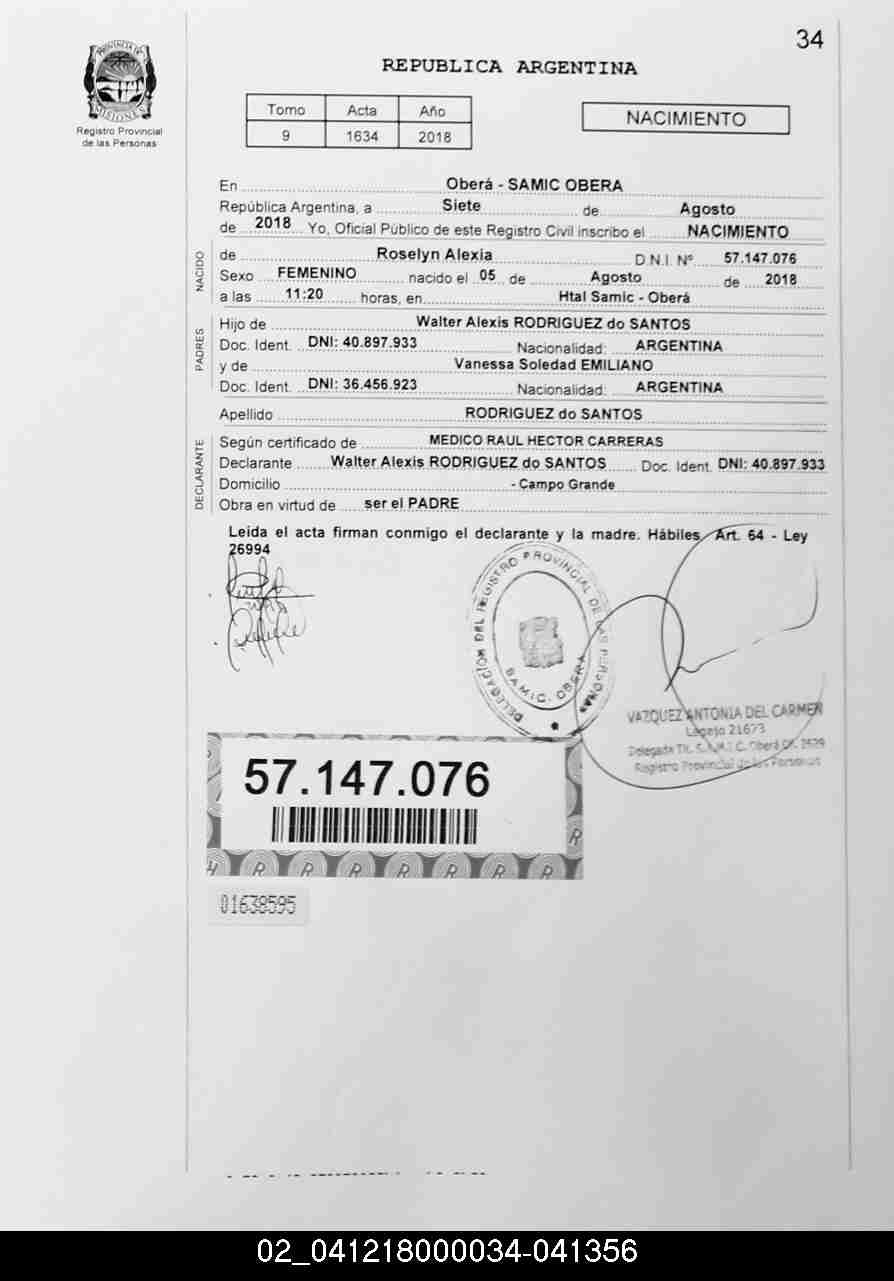 34
PROVINCIA DE
MISIONES
Registro Provincial
de las Personas
REPUBLICA ARGENTINA
Tomo Acta Año
9 1634 2018
NACIMIENTO
En Oberá - SAMIC OBERA
República Argentina, a Siete de Agosto
de 2018 Yo, Oficial Público de este Registro Civil inscribo el NACIMIENTO
NACIDO
de Roselyn Alexia D.N.I. Nº 57.147.076
Sexo FEMENINO nacido el 05 de Agosto de 2018
a las 11:20 horas, en Htal Samic - Oberá
PADRES
Hijo de Walter Alexis RODRIGUEZ do SANTOS
Doc. Ident. DNI: 40.897.933 Nacionalidad: ARGENTINA
y de Vanessa Soledad EMILIANO
Doc. Ident. DNI: 36.456.923 Nacionalidad: ARGENTINA
Apellido RODRIGUEZ do SANTOS
DECLARANTE
Según certificado de MEDICO RAUL HECTOR CARRERAS
Declarante Walter Alexis RODRIGUEZ do SANTOS Doc. Ident. DNI: 40.897.933
Domicilio - Campo Grande
Obra en virtud de ser el PADRE
Leída el acta firman conmigo el declarante y la madre. Hábiles Art. 64 - Ley
26994
DELEGACIÓN DEL REGISTRO PROVINCIAL DE LAS PERSONAS
SAMIC. OBERA
VAZQUEZ ANTONIA DEL CARMEN
Legajo 21673
Registro Provincial de las Personas
57.147.076
01638595
02_041218000034-041356